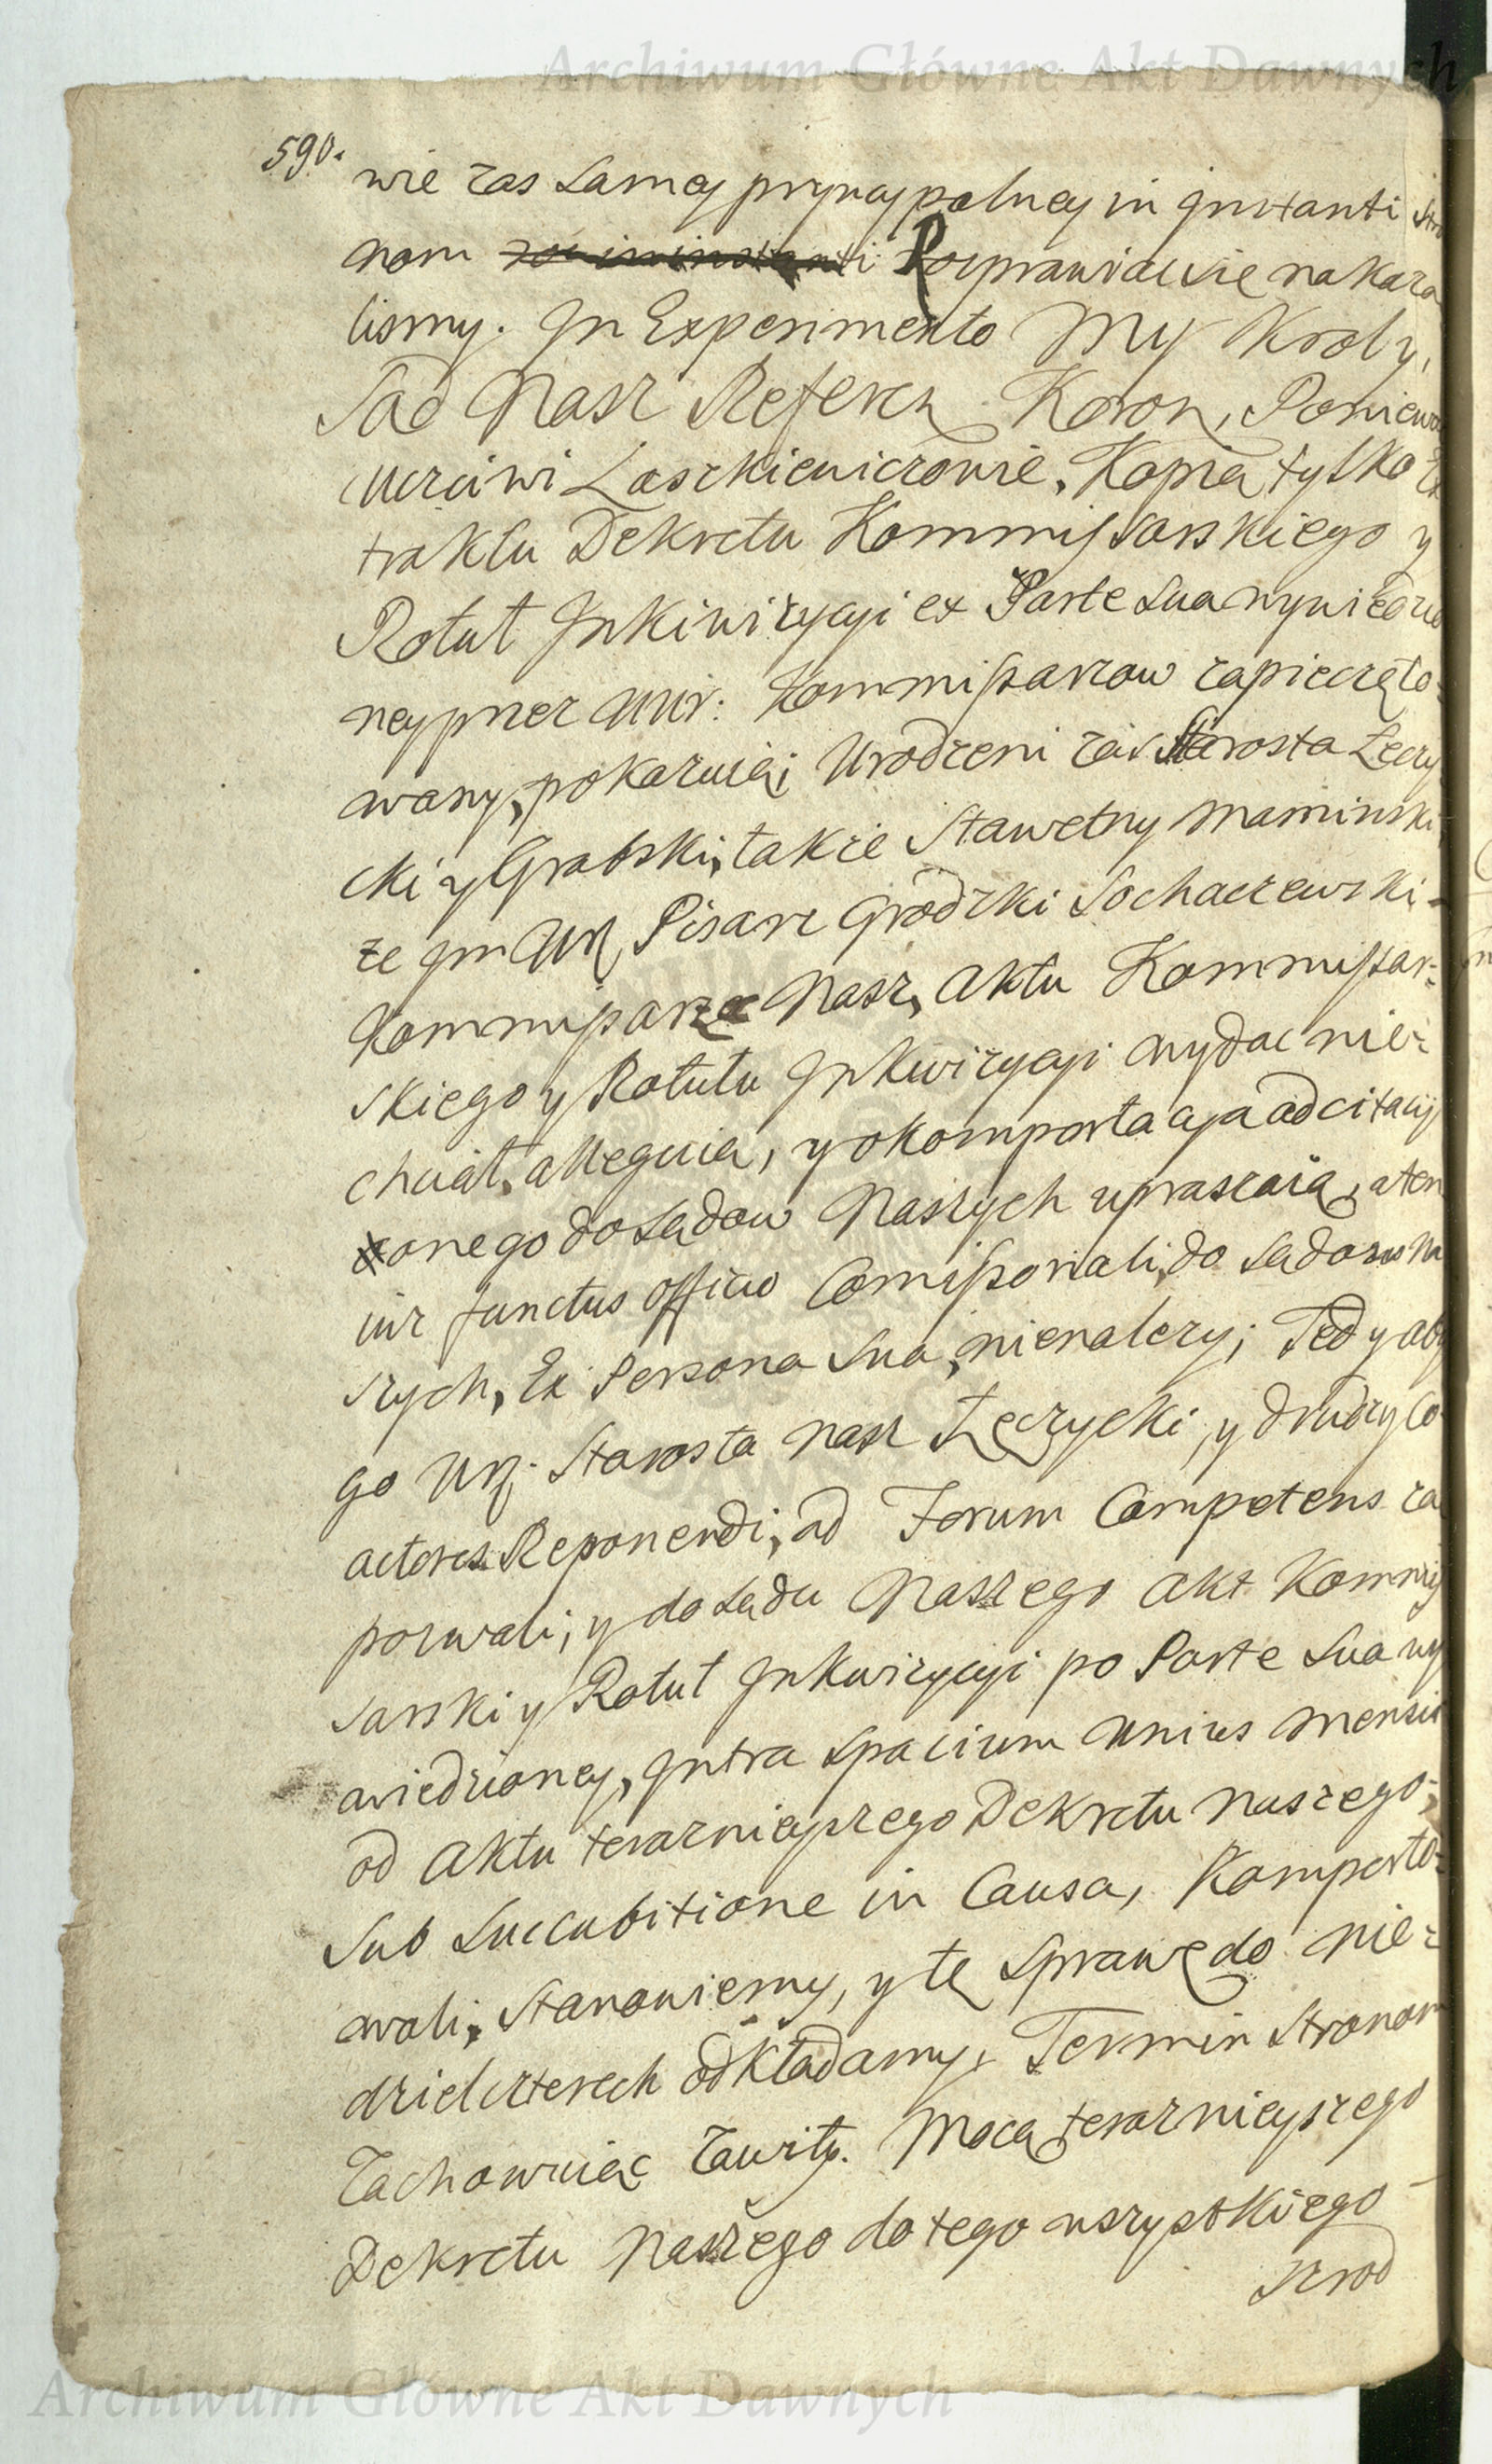 Archiwum Główne Akt Dawnych
590.
wie zas samey pryncypalney in instanti stro
nom za in instanti Rozprawic sie nakaza
lismy. In Experimento My Krol y,
Sad Nasz Referen Koron, Poniewa
Uczciwi Laszkiewiczowie, Kopią tylko Ex
traktu Dekretu Kommissarskiego y
Rotuł Inkiwizycyi ex Parte Sua wywiedzio
ney przez Urr: Kommissarzow zapieczęto=
wany, pokazuią; Urodzeni zas Starosta Łęczy
cki y Grabski, takze Sławetny Maminski,
ze im Ur, Pisarz Grodzki Sochaczewski=
Kommissarz Nasz, Aktu Kommissar=
skiego y Rotułu Inkwizycyi wydac nie=
chciał, alleguią, y o komportacyą ad citacij
onego do Sądow Naszych upraszaią, a ten
iuz functus officio Comissoriali, do Sadow Na
szych, Ex Persona Sua, nienalezy; Tedy aby
go Ur. Starosta Nasz Łęczycki, y drudzy Co
actores Reponendi, ad Forum Competens za
pozwali; y do Sądu Naszego Akt Kommis
sarski y Rotuł Inkwizycyi po Parte Sua wy
wiedzioney, Intra Spacium Unius Mensis
od Aktu terazniejszego Dekretu Naszego,
Sub Succubitione in Causa, Komporto=
wali, Stanowiemy, y tę Sprawę do Nie=
dziel czterech odkładamy, Termin Stronom
Zachowuiąc Zawity. Mocą terazniejszego
Dekretu Naszego do tego wszystkiego
Urod
Archiwum Główne Akt Dawnych